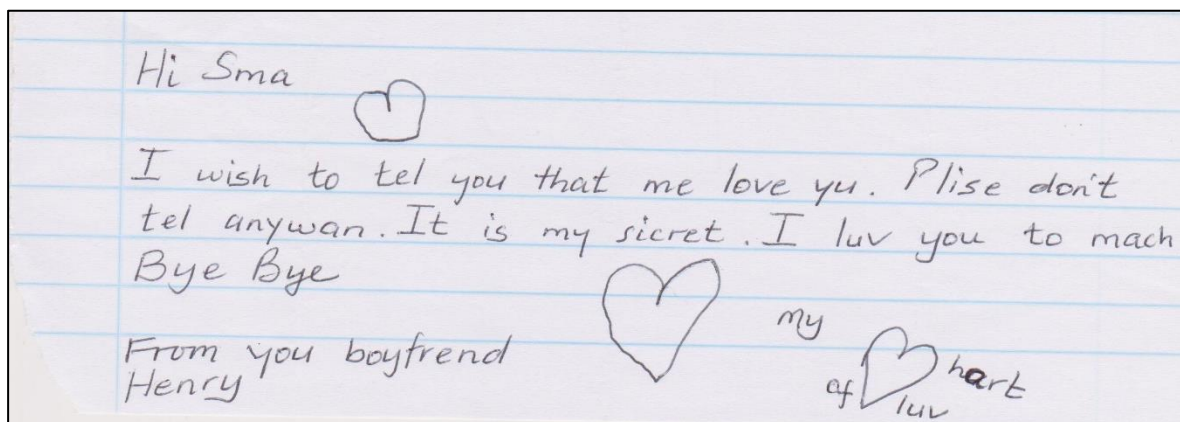 Hi Sma
I wish to tel you that me love yu. Plise don't
tel anywan. It is my sicret. I luv you to mach
Bye Bye
From you boyfrend
Henry
my
hart
of luv